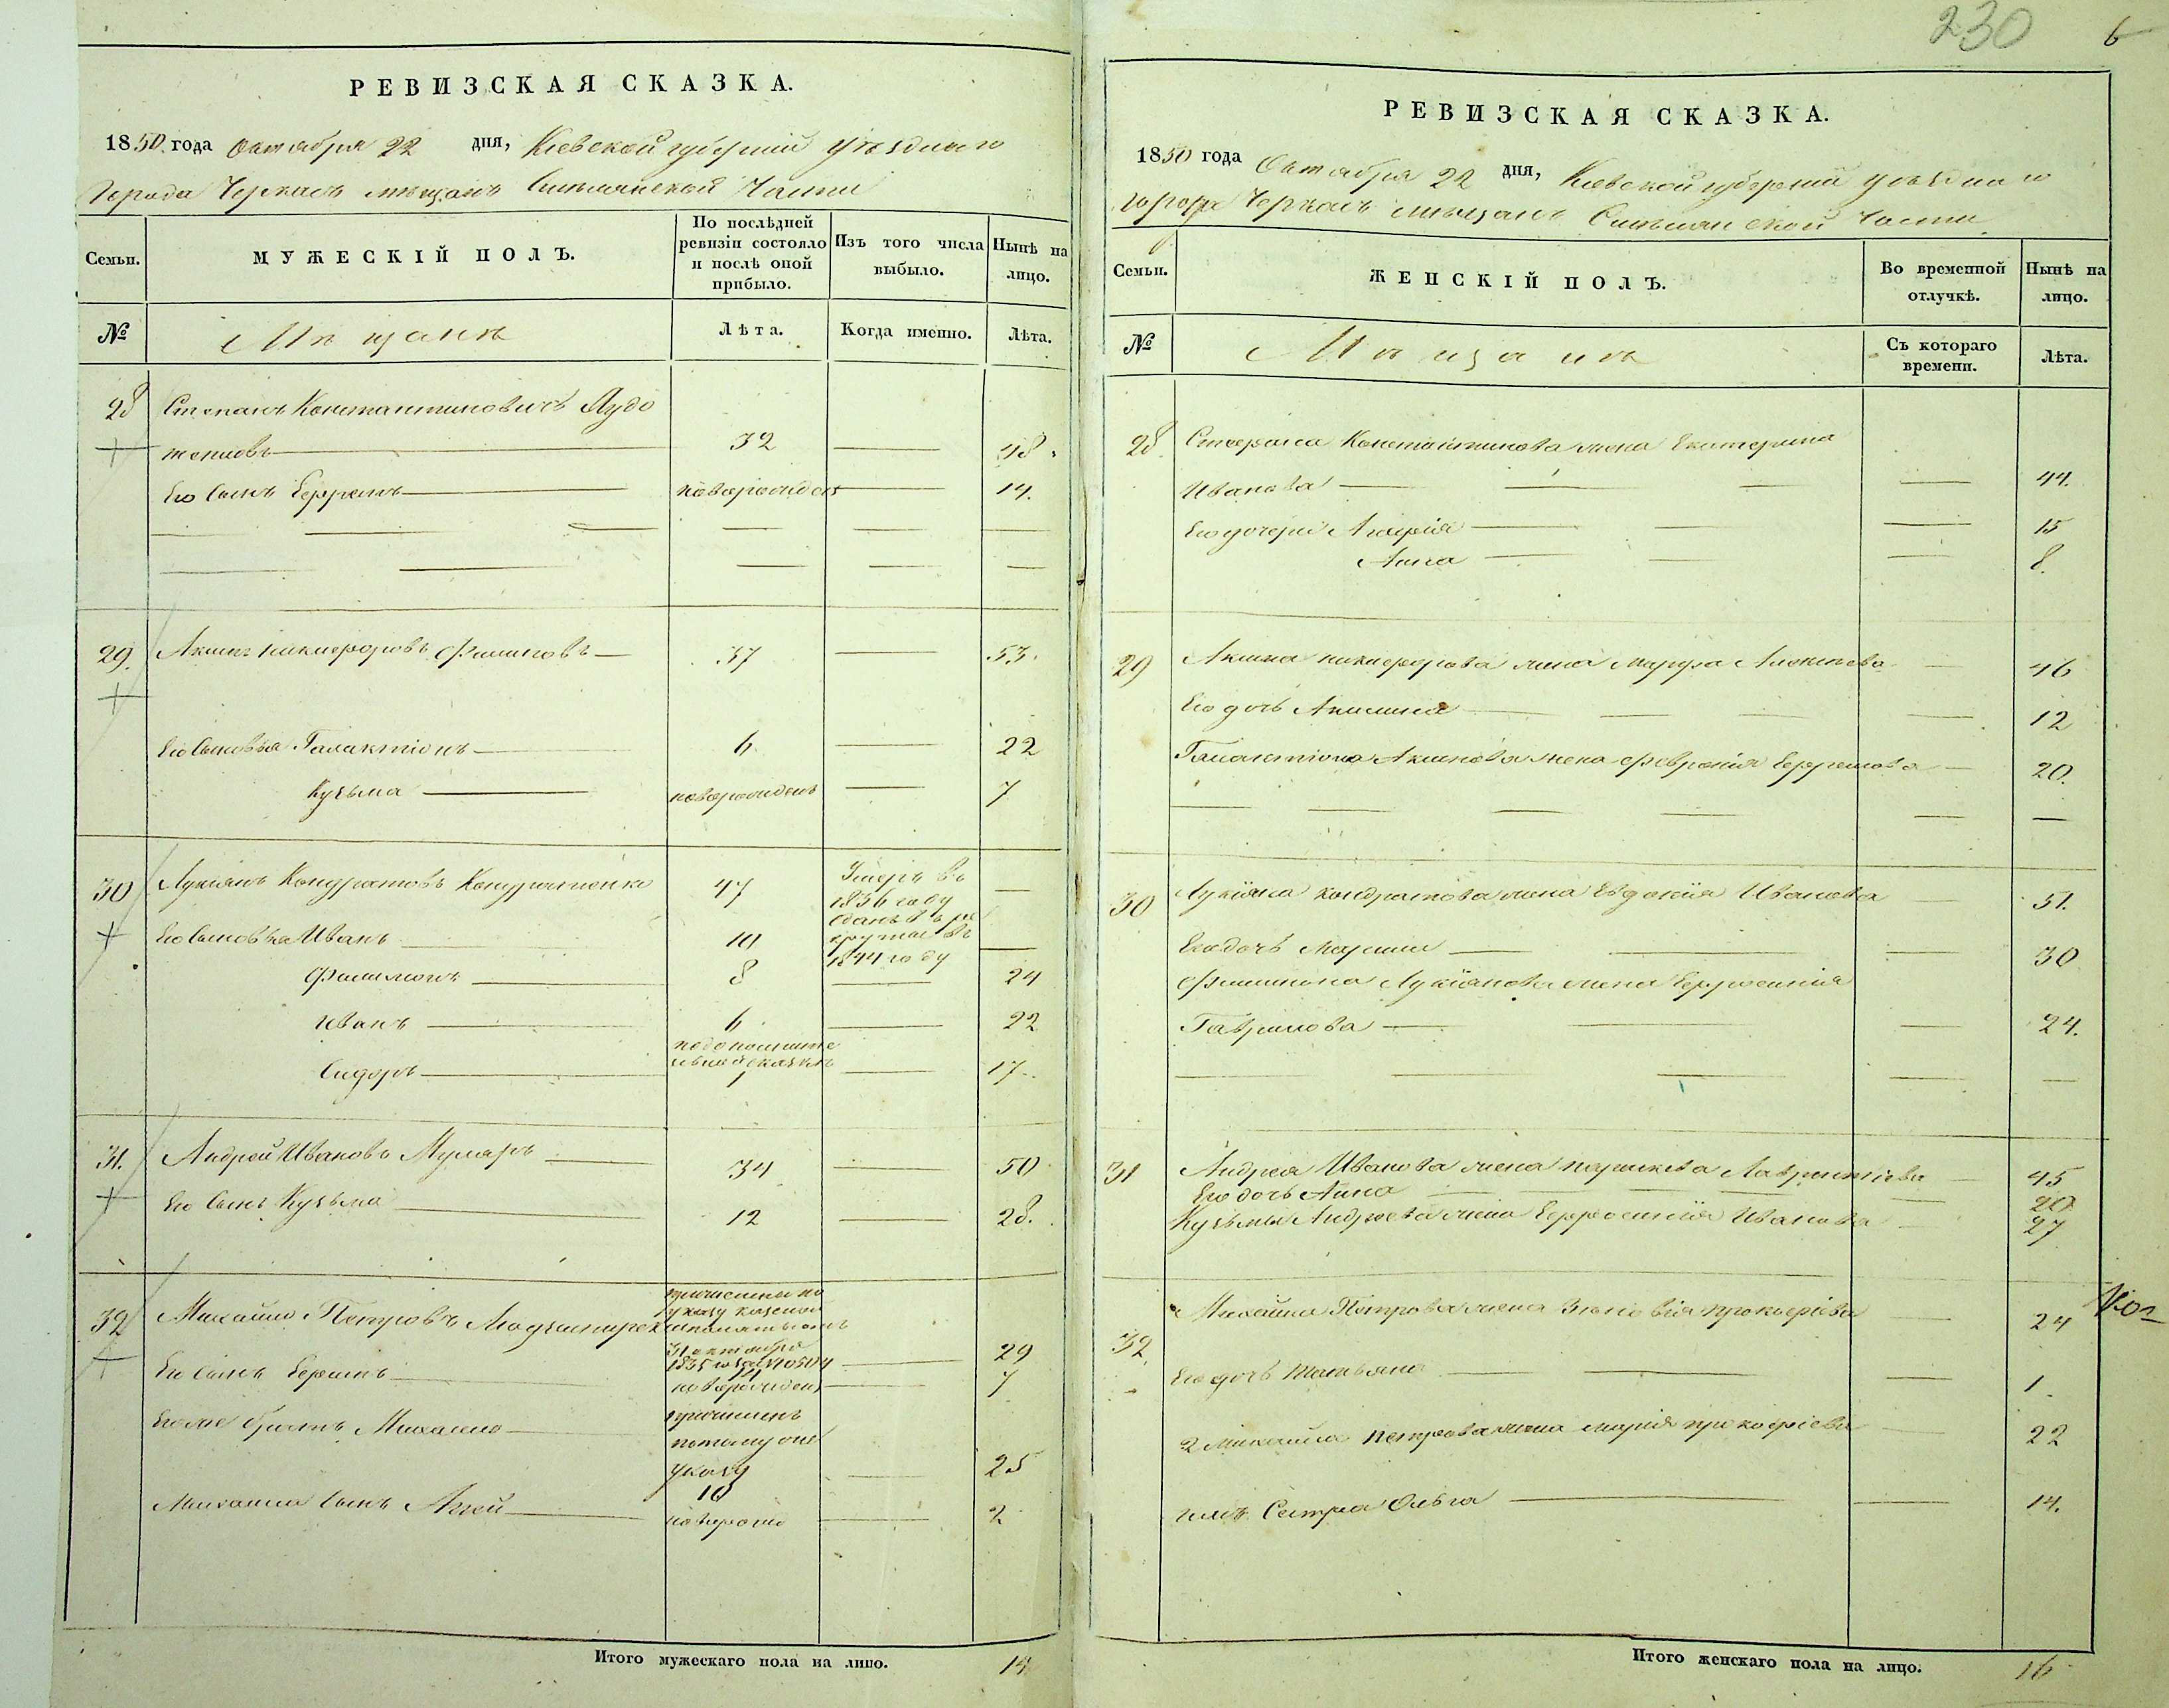 230
6
РЕВИЗСКАЯ СКАЗКА.
1850 года Октября 22 дня, Кіевской губерніи уѣзднаго
Города Черкасъ мѣщанъ Смѣлянской Части
Семьи.
МУЖЕСКІЙ ПОЛЪ.
По послѣдней ревизіи состояло и послѣ оной прибыло.
Изъ того числа выбыло.
Нынѣ на лицо.
№
Мѣщанѣ
Лѣта.
Когда именно.
Лѣта.
28 Степанъ Константиновичъ
32 48
Его Сынъ Ефремъ новорожденъ 14.
29. Акимъ Никифоровъ Филиповъ 37 53.
Его Сыновья Галактіонъ 6 22
Кузьма новорожденъ 7
30 Лукіянъ Кондратовъ Кондратенко 47 Умеръ въ
1836 году
Его Сыновья Иванъ 10 сданъ въ ре
круты въ
1844 году
Филимонъ 8 24
Иванъ 6 22
по дополните
льной сказкѣ
Сидоръ 1 17.
31. Андрей Ивановъ Муляръ 34 50
Его Сынъ Кузьма 12 28.
32 Михайло Петровъ
причислены по
указу казенной
31 октября
1835 29
Его Сынъ новорожден 7
Его же братъ Михайло причисленъ
потому же
указу 25
10
Михайла Сынъ новорожд 2
Итого мужескаго пола на лицо. 14
РЕВИЗСКАЯ СКАЗКА.
1850 года Октября 22 дня, Кіевской губерніи уѣзднаго
города Черкасъ мѣщанъ Смѣлянской Части
Семьи.
ЖЕНСКІЙ ПОЛЪ.
Во временной отлучкѣ.
Нынѣ на лицо.
№
Мѣщанѣ
Съ котораго времени.
Лѣта.
28. Степана Константинова жена Екатерина
Иванова 44.
Его дочери Агафія 15
Анна 8.
29 Акима Никифорова жена Марфа Алексѣева 46
Его дочь Акилина 12
Галактіона Акимова жена Февронія Ефремова 20.
30 Лукіяна Кондратова жена Евдокія Иванова 51.
Его дочь 30
Филимона Лукіянова жена Ефросинія
Гаврилова 24.
31 Андрея Иванова жена Параскева Лаврентіева 45
Его дочь Анна 20
Кузьмы Андреева жена Ефросинія Иванова 27
32. Михайла Петрова жена Зиновія Прокофіева 24
Его дочь Татьяна 1.
2 Михайла Петрова жена Марія Прокофіева 22
ихъ Сестра Ольга 14.
Итого женскаго пола на лицо. 16